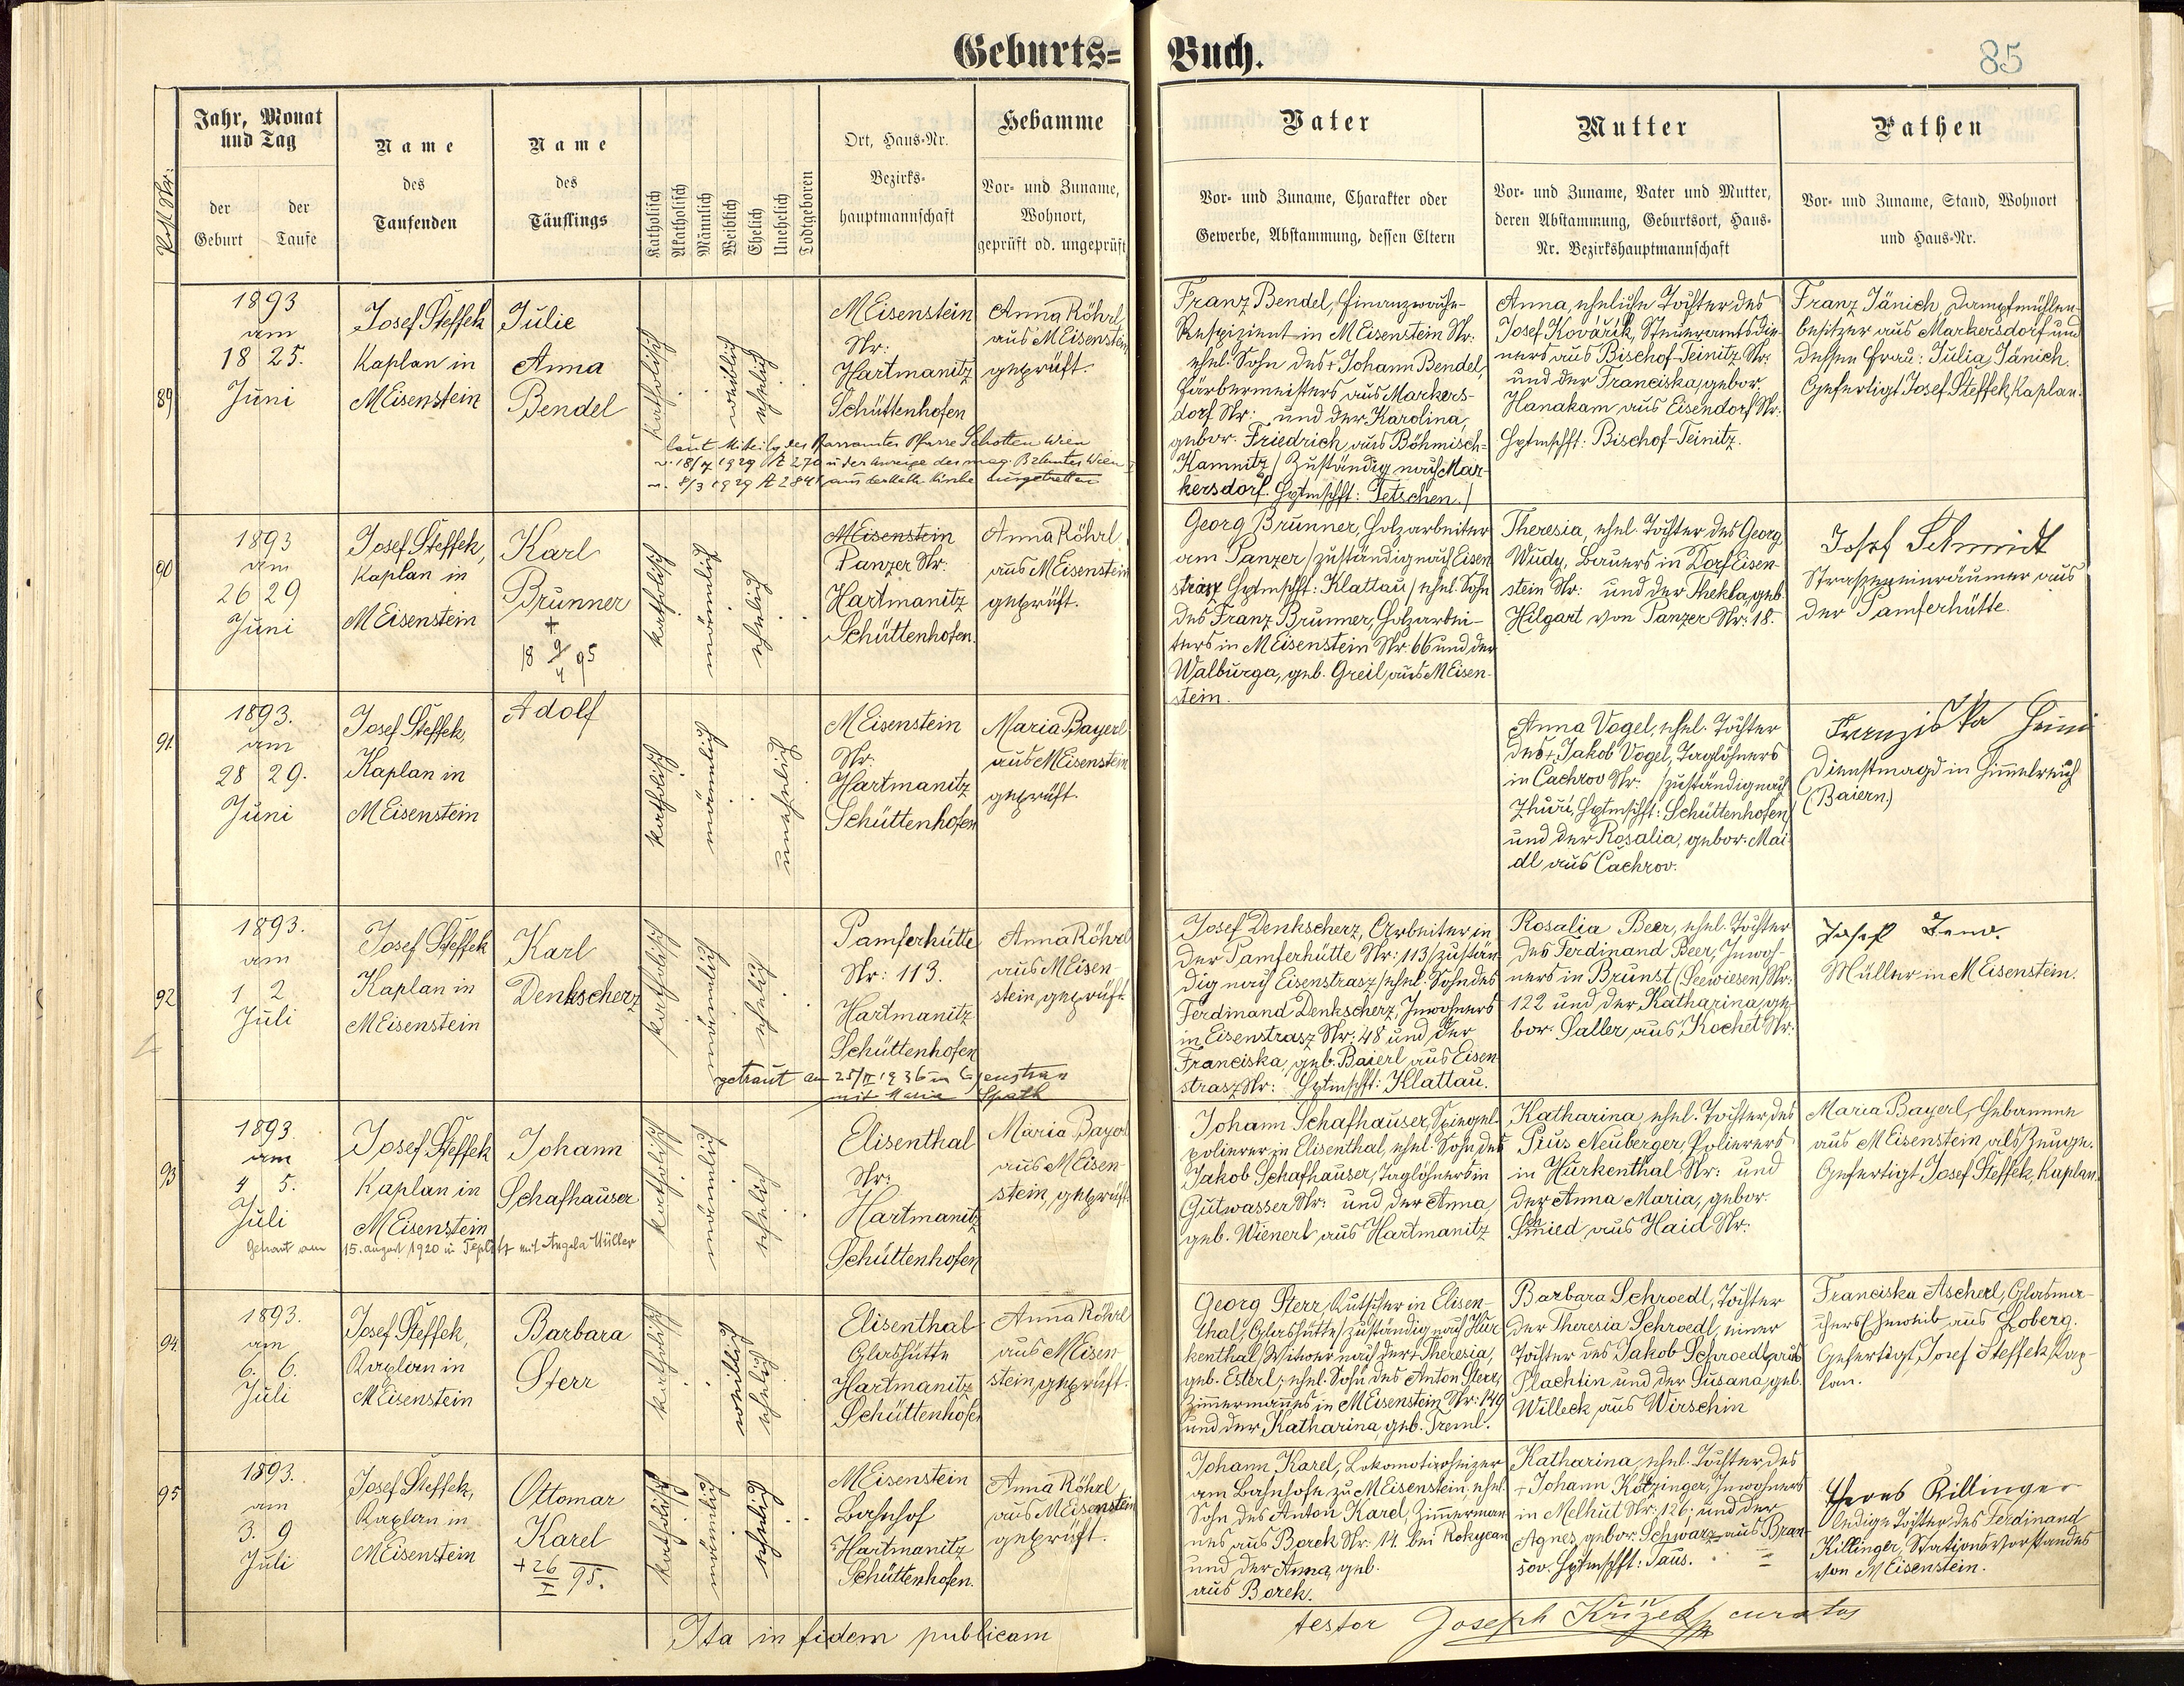 Geburts= Buch.
85
Jahr, Monat
und Tag
der Geburt
der Taufe
Name
des
Taufenden
Name
des
Täuflings
Katholisch
Akatholisch
Männlich
Weiblich
Ehelich
Unehelich
Todtgeboren
Ort, Haus-Nr.
Bezirks-
hauptmannschaft
Hebamme
Vor- und Zuname,
Wohnort,
geprüft od. ungeprüft
Vater
Vor- und Zuname, Charakter oder
Gewerbe, Abstammung, dessen Eltern
Mutter
Vor- und Zuname, Vater und Mutter,
deren Abstammung, Geburtsort, Haus-
Nr. Bezirkshauptmannschaft
Pathen
Vor- und Zuname, Stand, Wohnort
und Haus-Nr.
89
1893
am
18 25.
Juni
Josef Steffek
Kaplan in
M Eisenstein
Julie
Anna
Bendel
katholisch
weiblich
ehelich
M Eisenstein
Nr:
Hartmanitz
Schüttenhofen
Anna Röhrl
aus M Eisenstein
geprüft.
Franz Bendel, Finanzwache-
Respizient in M Eisenstein Nr:
ehel. Sohn des + Johann Bendel,
Färbermeisters aus Markers-
dorf Nr: und der Karolina,
gebor. Friedrich aus Böhmisch-
Kamnitz / Zuständig nach Mar-
kersdorf. Hptmschft: Tetschen./
Anna, eheliche Tochter des
Josef Kovářík, Steueramtsdie-
ners aus Bischof-Teinitz Nr:
und der Franciska, gebor.
Hanakam aus Eisendorf Nr.
Hptmschft: Bischof-Teinitz.
Franz Jänich, Dampfmühlen-
besitzer aus Markersdorf und
dessen Frau: Julia Jänich.
Gefertigt Josef Steffek, Kaplan.
laut Mitteilg des Pfarramtes Pfarre Schotten Wien
v. 18/7 1929 Z 270 u der Anzeige des mag. Bz Amtes Wien
v. 8/3 1929 Z 284 aus der kath. Kirche ausgetreten
90
1893
am
26 29
Juni
Josef Steffek,
Kaplan in
M Eisenstein
Karl
Brunner
+
18 9/4 95
katholisch
männlich
ehelich
M Eisenstein
Panzer Nr:
Hartmanitz
Schüttenhofen.
Anna Röhrl
aus M Eisenstein
geprüft.
Georg Brunner, Holzarbeiter
am Panzer / zuständig nach Eisen
strasz Hptmschft: Klattau / ehel. Sohn
des Franz Brunner, Holzarbei-
ters in M Eisenstein Nr: 66 und der
Walburga, geb. Greil aus M Eisen-
stein.
Theresia, ehel. Tochter des Georg
Wudy, Bauers in Dorf Eisen-
stein Nr: und der Thekla, geb.
Hilgart von Panzer Nr: 18.
Josef Schmidt
Strasseneinräumer aus
der Pamferhütte.
91
1893.
am
28 29.
Juni
Josef Steffek,
Kaplan in
M Eisenstein
Adolf
katholisch
männlich
unehelich
M Eisenstein
Nr:
Hartmanitz
Schüttenhofen
Maria Bayerl
aus M Eisenstein
geprüft.
Anna Vogel, ehel. Tochter
des + Jakob Vogel, Taglöhners
in Cachrov Nr: / zuständig nach
Zhuri, Hptmschft: Schüttenhofen/
und der Rosalia, gebor. Mai-
dl aus Cachrov.
Franziska
Dienstmagd in Himmelreich
(Baiern.)
92
1893.
am
1 2
Juli
Josef Steffek
Kaplan in
M Eisenstein
Karl
Denkscherz
katholisch
männlich
ehelich
Pamferhütte
Nr: 113.
Hartmanitz
Schüttenhofen
Anna Röhrl
aus M Eisen-
stein, geprüft.
Josef Denkscherz, Arbeiter in
der Pamferhütte Nr: 113 / zustän-
dig nach Eisenstrasz / ehel. Sohn des
Ferdinand Denkscherz, Inwohners
in Eisenstrasz Nr: 48 und der
Franciska, geb. Baierl aus Eisen-
strasz Nr: Hptmschft: Klattau.
Rosalia Beer, ehel. Tochter
des Ferdinand Beer, Inwoh-
ners in Brunst (Seewiesen) Nr:
122 und der Katharina, ge-
bor. Saller, aus Kochet Nr:
Josef
Müller in M Eisenstein.
getraut am 25/II 1936 in Eisenstrass
mit Maria Späth
93
1893.
am
4 5.
Juli
Josef Steffek
Kaplan in
M Eisenstein
Johann
Schafhauser
katholisch
männlich
ehelich
Elisenthal
Nr:
Hartmanitz
Schüttenhofen
Maria Bayerl
aus M Eisen-
stein, geprüft
Johann Schafhauser, Spiegel-
polierer in Elisenthal, ehel. Sohn des
Jakob Schafhauser, Taglöhners in
Gutwasser Nr: und der Anna,
geb. Wienerl aus Hartmanitz
Katharina, ehel. Tochter des
Pius Neuberger, Polierers
in Hurkenthal Nr: und
der Anna Maria, gebor.
Schmied aus Haid Nr:
Maria Bayerl, Hebamme
aus M Eisenstein als Zeuge.
Gefertigt Josef Steffek, Kaplan.
Getraut am 15. August 1920 in Teplitz mit Angela Müller
94
1893.
am
6. 6.
Juli
Josef Steffek,
Kaplan in
M Eisenstein
Barbara
Sterr
katholisch
weiblich
ehelich
Elisenthal
Glashütte
Hartmanitz
Schüttenhofen
Anna Röhrl
aus M Eisen-
stein, geprüft.
Georg Sterr, Kutscher in Elisen-
thal, Glashütte / zuständig nach Hur-
kenthal, Witwer nach der + Theresia,
geb. Esterl; ehel. Sohn des Anton Sterr,
Zimmermannes in M Eisenstein Nr: 149
und der Katharina, geb. Treml.
Barbara Schroedl, Tochter
der Theresia Schroedl, einer
Tochter des Jakob Schroedl aus
Plachtin und der Susana, geb.
Willeck aus Wirschin
Franciska Ascherl, Glasma-
chers Eheweib aus Loberg.
Gefertigt Josef Steffek, Kap-
lan.
95
1893.
am
3. 9
Juli
Josef Steffek,
Kaplan in
M Eisenstein
Ottomar
Karel
+ 26/I 95.
katholisch
männlich
ehelich
M Eisenstein
Bahnhof
Hartmanitz
Schüttenhofen.
Anna Röhrl
aus M Eisenstein
geprüft.
Johann Karel, Lokomotivheizer
am Bahnhofe zu M Eisenstein, ehel.
Sohn des Anton Karel, Zimmerman-
nes aus Borek Nr: 14. bei Rokycan
und der Anna, geb.
aus Borek.
Katharina, ehel. Tochter des
+ Johann Kötzinger, Inwohners
in Melhut Nr: 126; und der
Agnes, gebor. Schwarz aus Bran-
sov. Hptmschft: Taus.
Killinger
ledige Tochter des Ferdinand
Killinger, Stationsvorstandes
von M Eisenstein.
Ita in fidem publicam
testor Joseph Křižek curatus